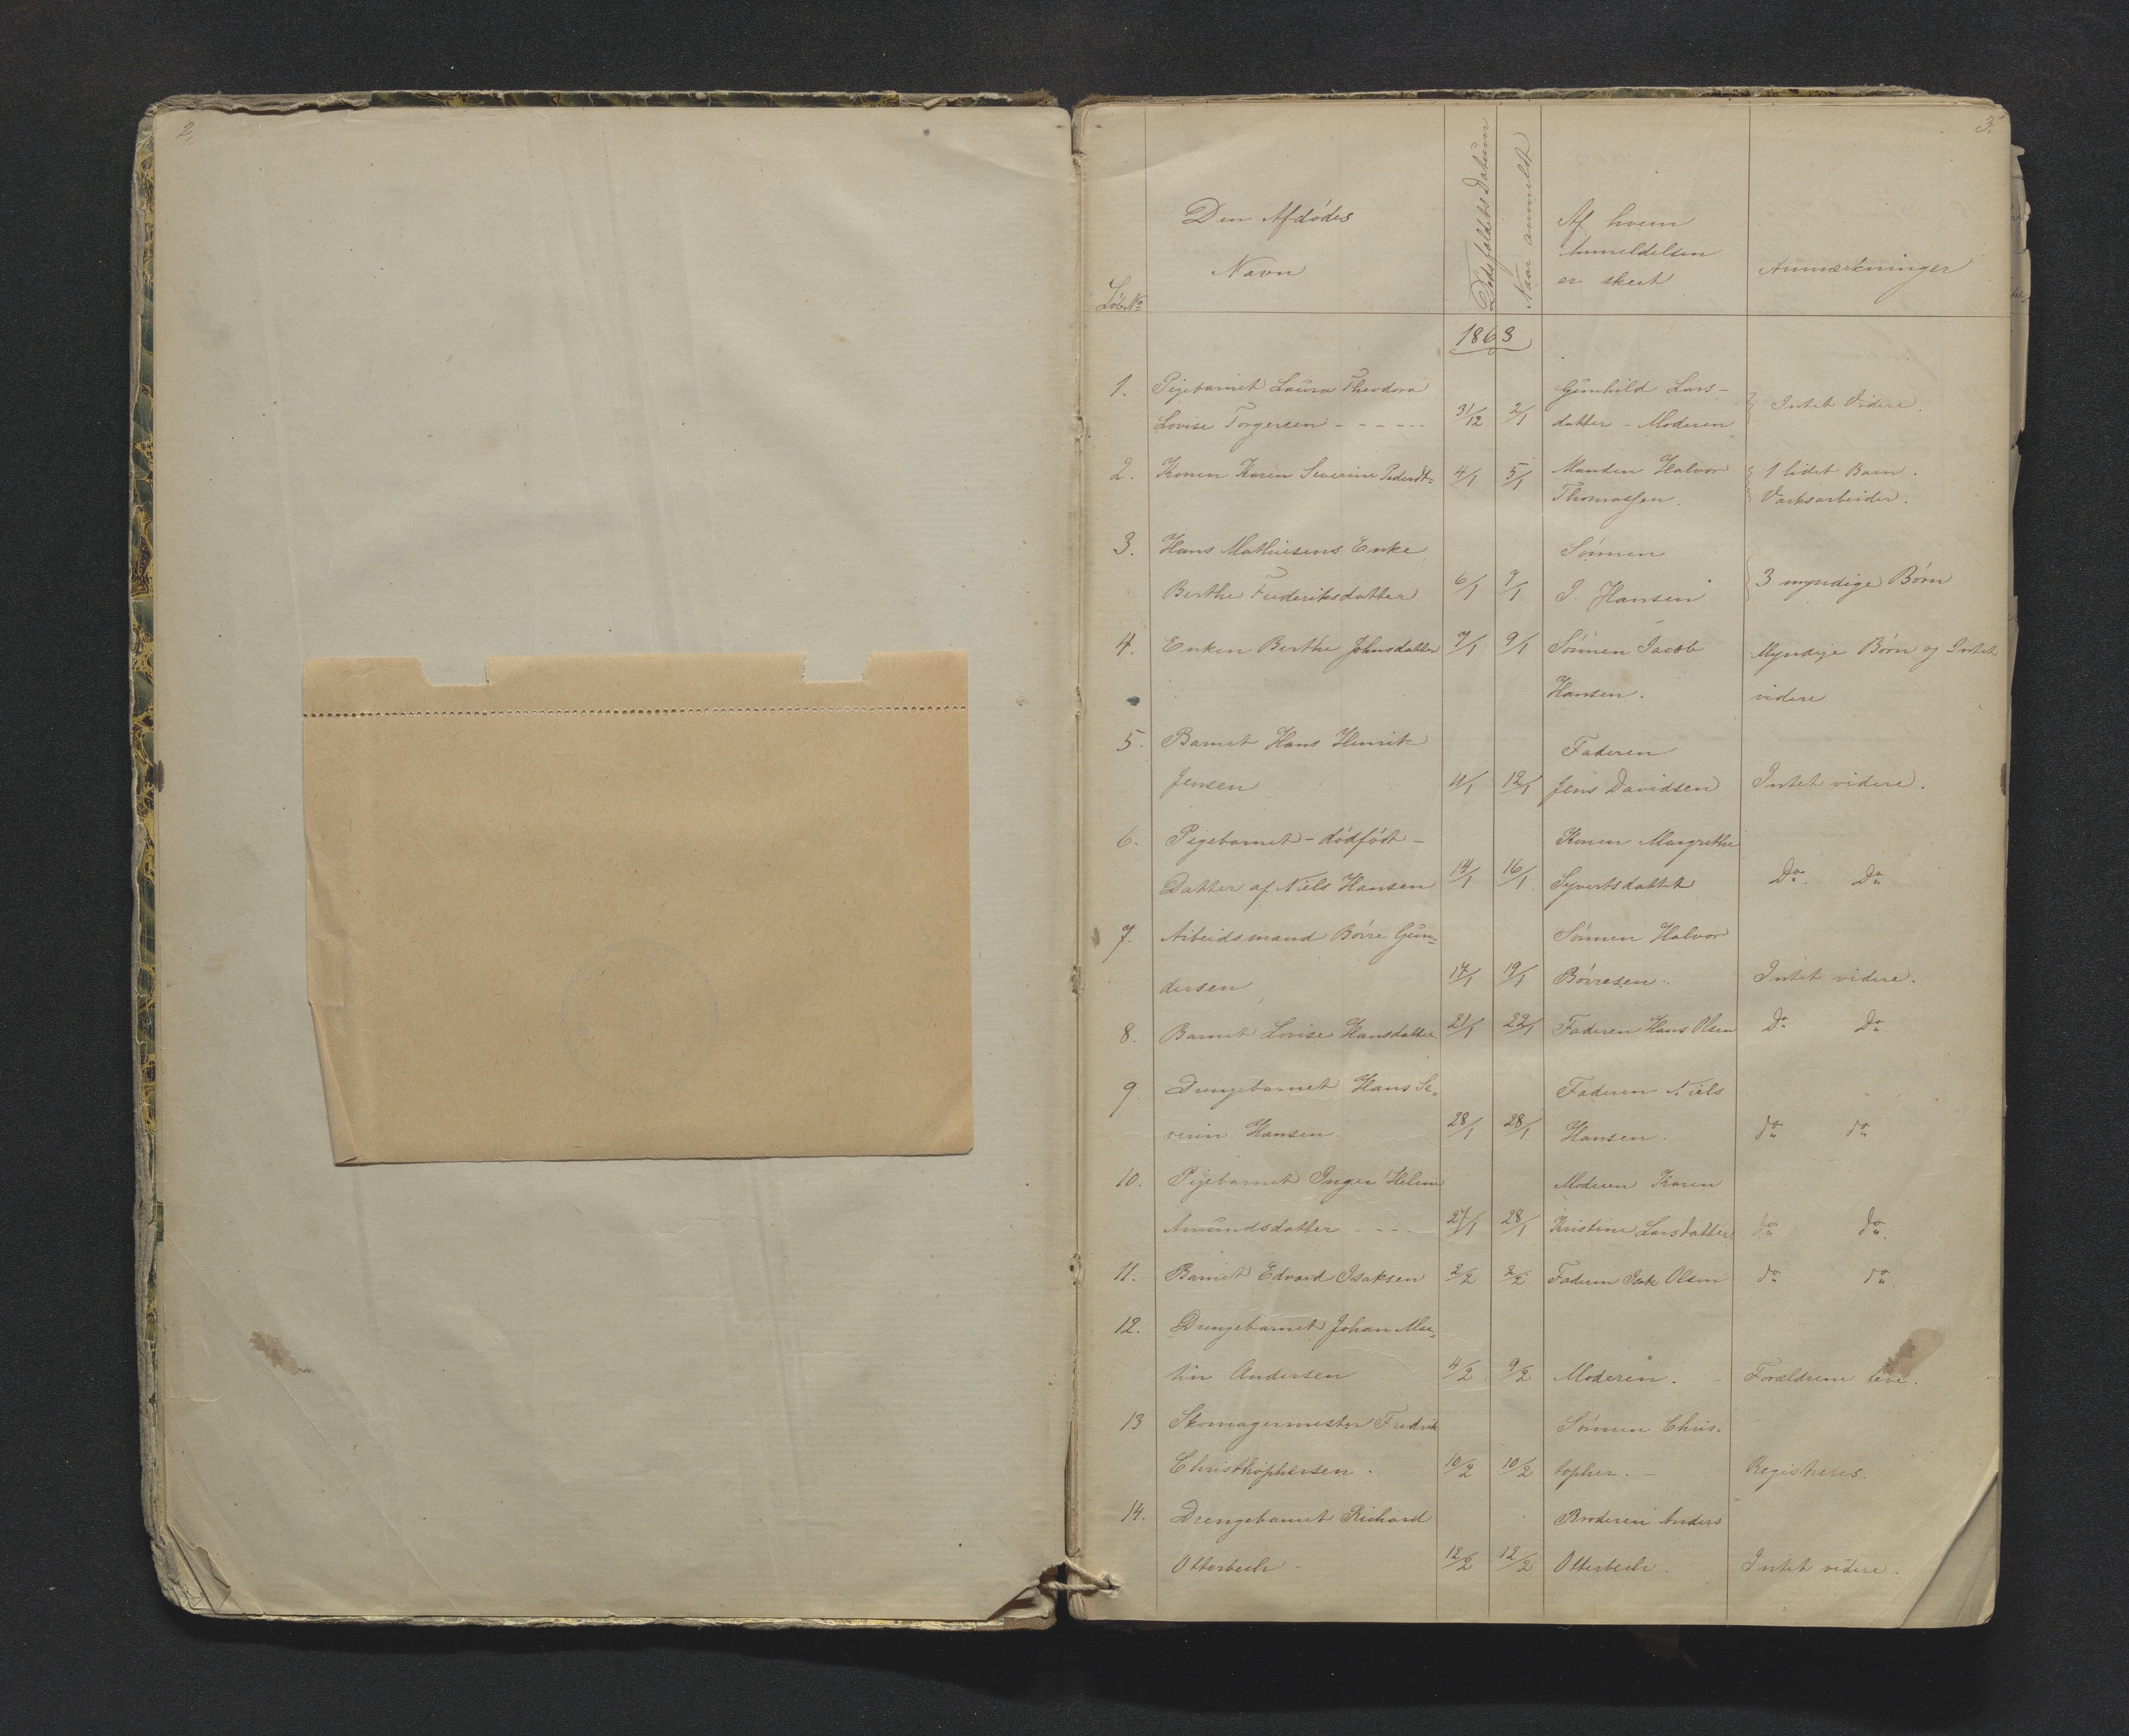 2.
3.
Löb. No
Den Afdödes
Navn
Dödsfaldets Datum
Naar anmeldt
Af hvem
Anmeldelsen
er skeet
Anmærkninger
1863
1. Pigebarnet Laura Theodora Gunhild Lars-
Lovise Torgersen - - - - - - 31/12 2/1 datter - Moderen } Intet Videre.
2. Konen Karen Severine Pedersdt= 4/1 5/1 Manden Halvor } 1 lidet Barn.
Thomassen. Værksarbeider.
3. Hans Mathiesens Enke Sönnen
Berthe Frederiksdatter 6/1 9/1 I. Hansen } 3 myndige Börn
4. Enken Berthe Johnsdatter 7/1 9/1 Sönnen Jacob Myndige Börn og Intet
Hansen. videre
5. Barnet Hans Henrik Faderen
Jensen 11/1 12/1 Jens Davidsen Intet videre.
6. Pigebarnet - dödfödt - Konen Margrethe
Datter af Niels Hansen 14/1 16/1 Syvertsdatter Do. Do
7. Arbeidsmand Börre Gun= Sönnen Halvor
dersen 17/1 19/1 Börresen. Intet videre.
8. Barnet Lovise Hansdatter 21/1 22/1 Faderen Hans Olsen Do Do.
9 Drengebarnet Hans Se= Faderen Niels
verin Hansen 28/1 28/1 Hansen. do do
10. Pigebarnet Inger Helene Moderen Karen
Amundsdatter - - - 27/1 28/1 Kristine Larsdatter do do.
11. Barnet Edvard Isaksen 2/2 2/2 Faderen Isak Olsen do do.
12. Drengebarnet Johan Mar=
tin Andersen 4/2 9/2 Moderen. Forældrene leve.
13 Skomagermester Fredrik Sönnen Chris-
Christhophersen. 10/2 10/2 topher. - Registreres.
14. Drengebarnet Richard Broderen Anders
Otterbech - 12/2 12/2 Otterbech. Intet videre.